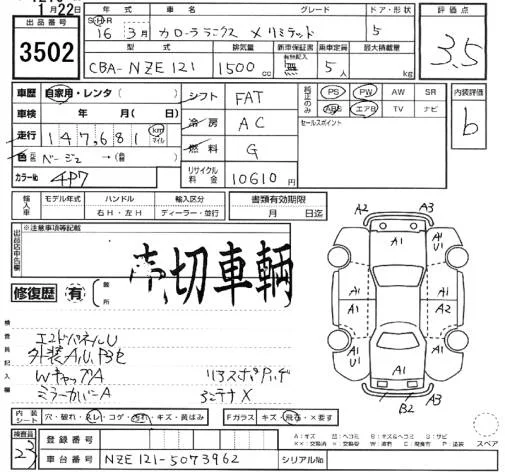 1月22日
年式 車名 グレード ドア・形状 評価点
出品番号 3502
S・H・R 16 3月 カローラランクス Xリミテッド 5 3.5
型式 排気量 新車保証書 乗車定員 最大積載量
CBA-NZE121 1500cc 有(記録付) 無 5人 kg
車歴 自家用・レンタ( ) シフト FAT 純正のみ PS PW AW SR 内装評価
車検 年 月(日) 冷房 AC ABS エアB TV ナビ b
走行 147,681 km マイル 燃料 G セールスポイント
色 元色 ベージュ →(替)
カラーNo 4P7 リサイクル料金 10610円
輸入車 モデル年式 ハンドル 輸入区分 書類有効期限
右H・左H ディーラー・並行 月 日迄
出品店申告欄 ※注意事項等記載
売切車輌
修復歴 有 箇所
A2 A3
A1 A1 U1
A1 A1 A1 A2
A1 A1
B2 A3
検査員記入欄
エンドパネルU
外装A,U,B色
WキャップA
ミラーカバーA
リアスポ
アンテナX
内装シート 穴・破れ・スレ・コゲ・汚れ・キズ・黄ばみ Fガラス キズ・飛石・X要す
A:キズ U:ヘコミ B:キズ&ヘコミ S:サビ
XX:交換済 X:交換要 W:波押 C:腐食 P:塗装 スペア
検査員 23 登録番号
車台番号 NZE121-5073962 シリアルNo